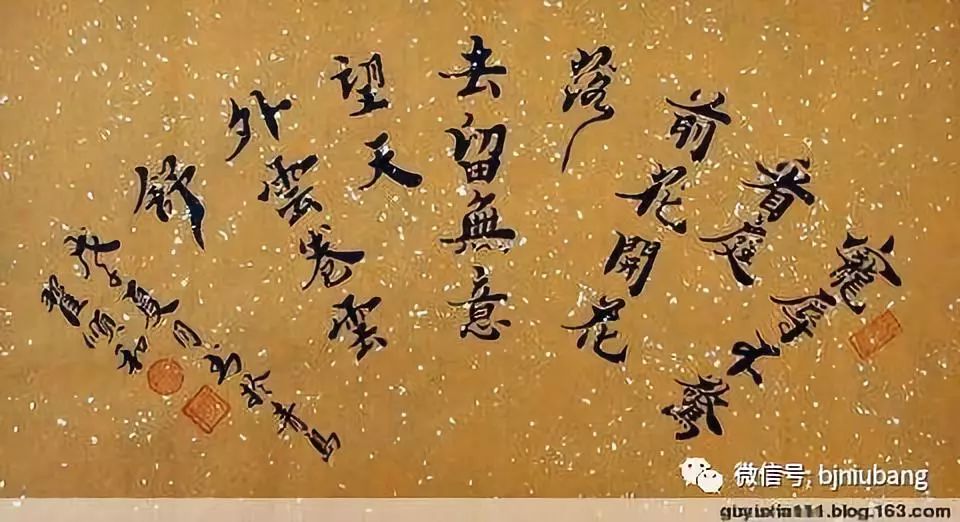 寵辱不驚
看庭
前花開花
落
去留無意
望天
外雲卷雲
舒
癸巳夏月书於青島
翟順和
微信号: bjniubang
guyuxia111.blog.163.com